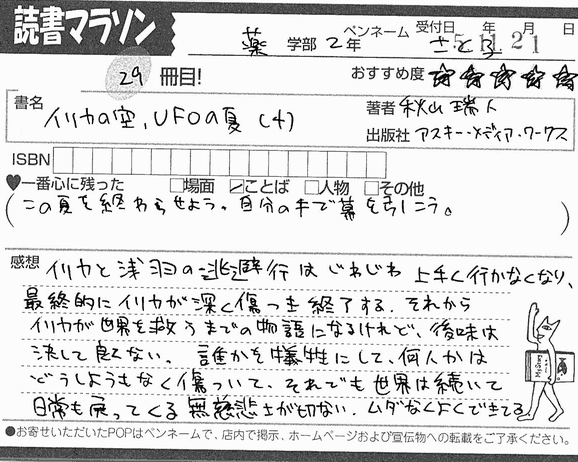 読書マラソン
薬 学部 2年 ペンネーム さとろ 受付日 年 月 日
5 11.21
29 冊目! おすすめ度 ☆☆☆☆☆
書名 イリヤの空,UFOの夏(4) 著者 秋山瑞人
出版社 アスキー・メディア・ワークス
ISBN
♥一番心に残った □場面 ☑ことば □人物 □その他
(この夏を終わらせよう。自分の手で幕を引こう。)
感想 イリヤと浅羽の逃避行はじわじわ上手く行かなくなり、
最終的にイリヤが深く傷つき終了する。それから
イリヤが世界を救うまでの物語になるけれど、後味は
決して良くない。誰かを犠牲にして、何人かは
どうしようもなく傷ついて、それでも世界は続いて
日常も戻ってくる無慈悲さが切ない.ムダなくよくできてる
●お寄せいただいたPOPはペンネームで、店内で掲示、ホームページおよび宣伝物への転載をご了承ください。